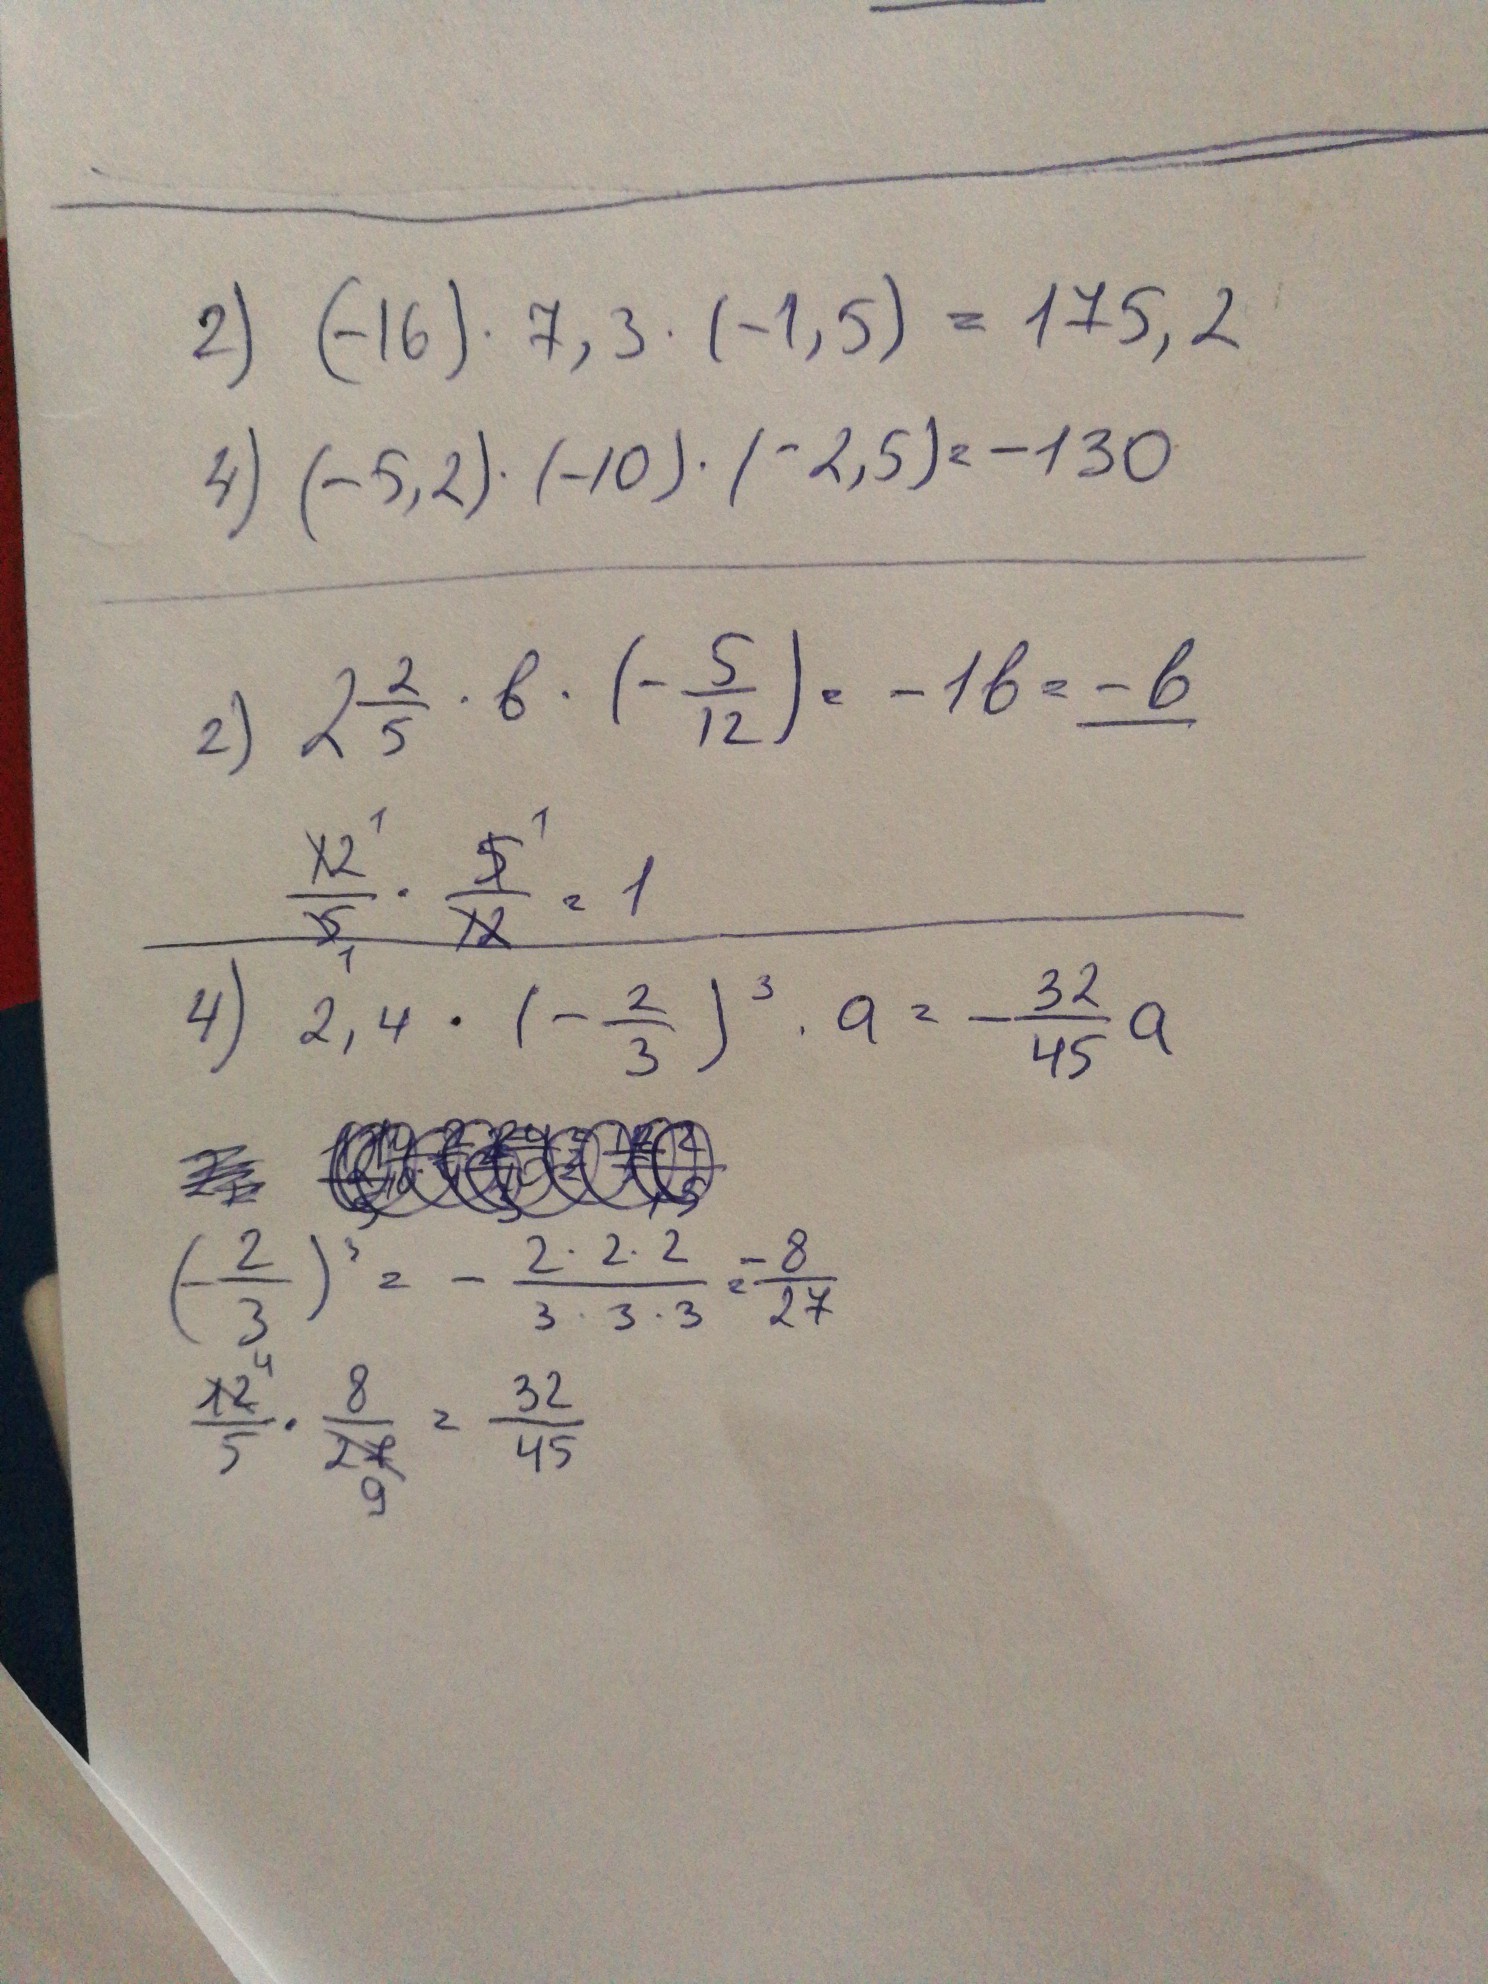 2) (-16) · 7,3 · (-1,5) = 175,2
4) (-5,2) · (-10) · (-2,5) = -130
2) 2 2/5 · b · (- 5/12) = -1b = -b
12/5 · 5/12 = 1
4) 2,4 · (- 2/3)³ · a = - 32/45 a
(- 2/3)³ = - 2·2·2/3·3·3 = - 8/27
12/5 · 8/27 = 32/45